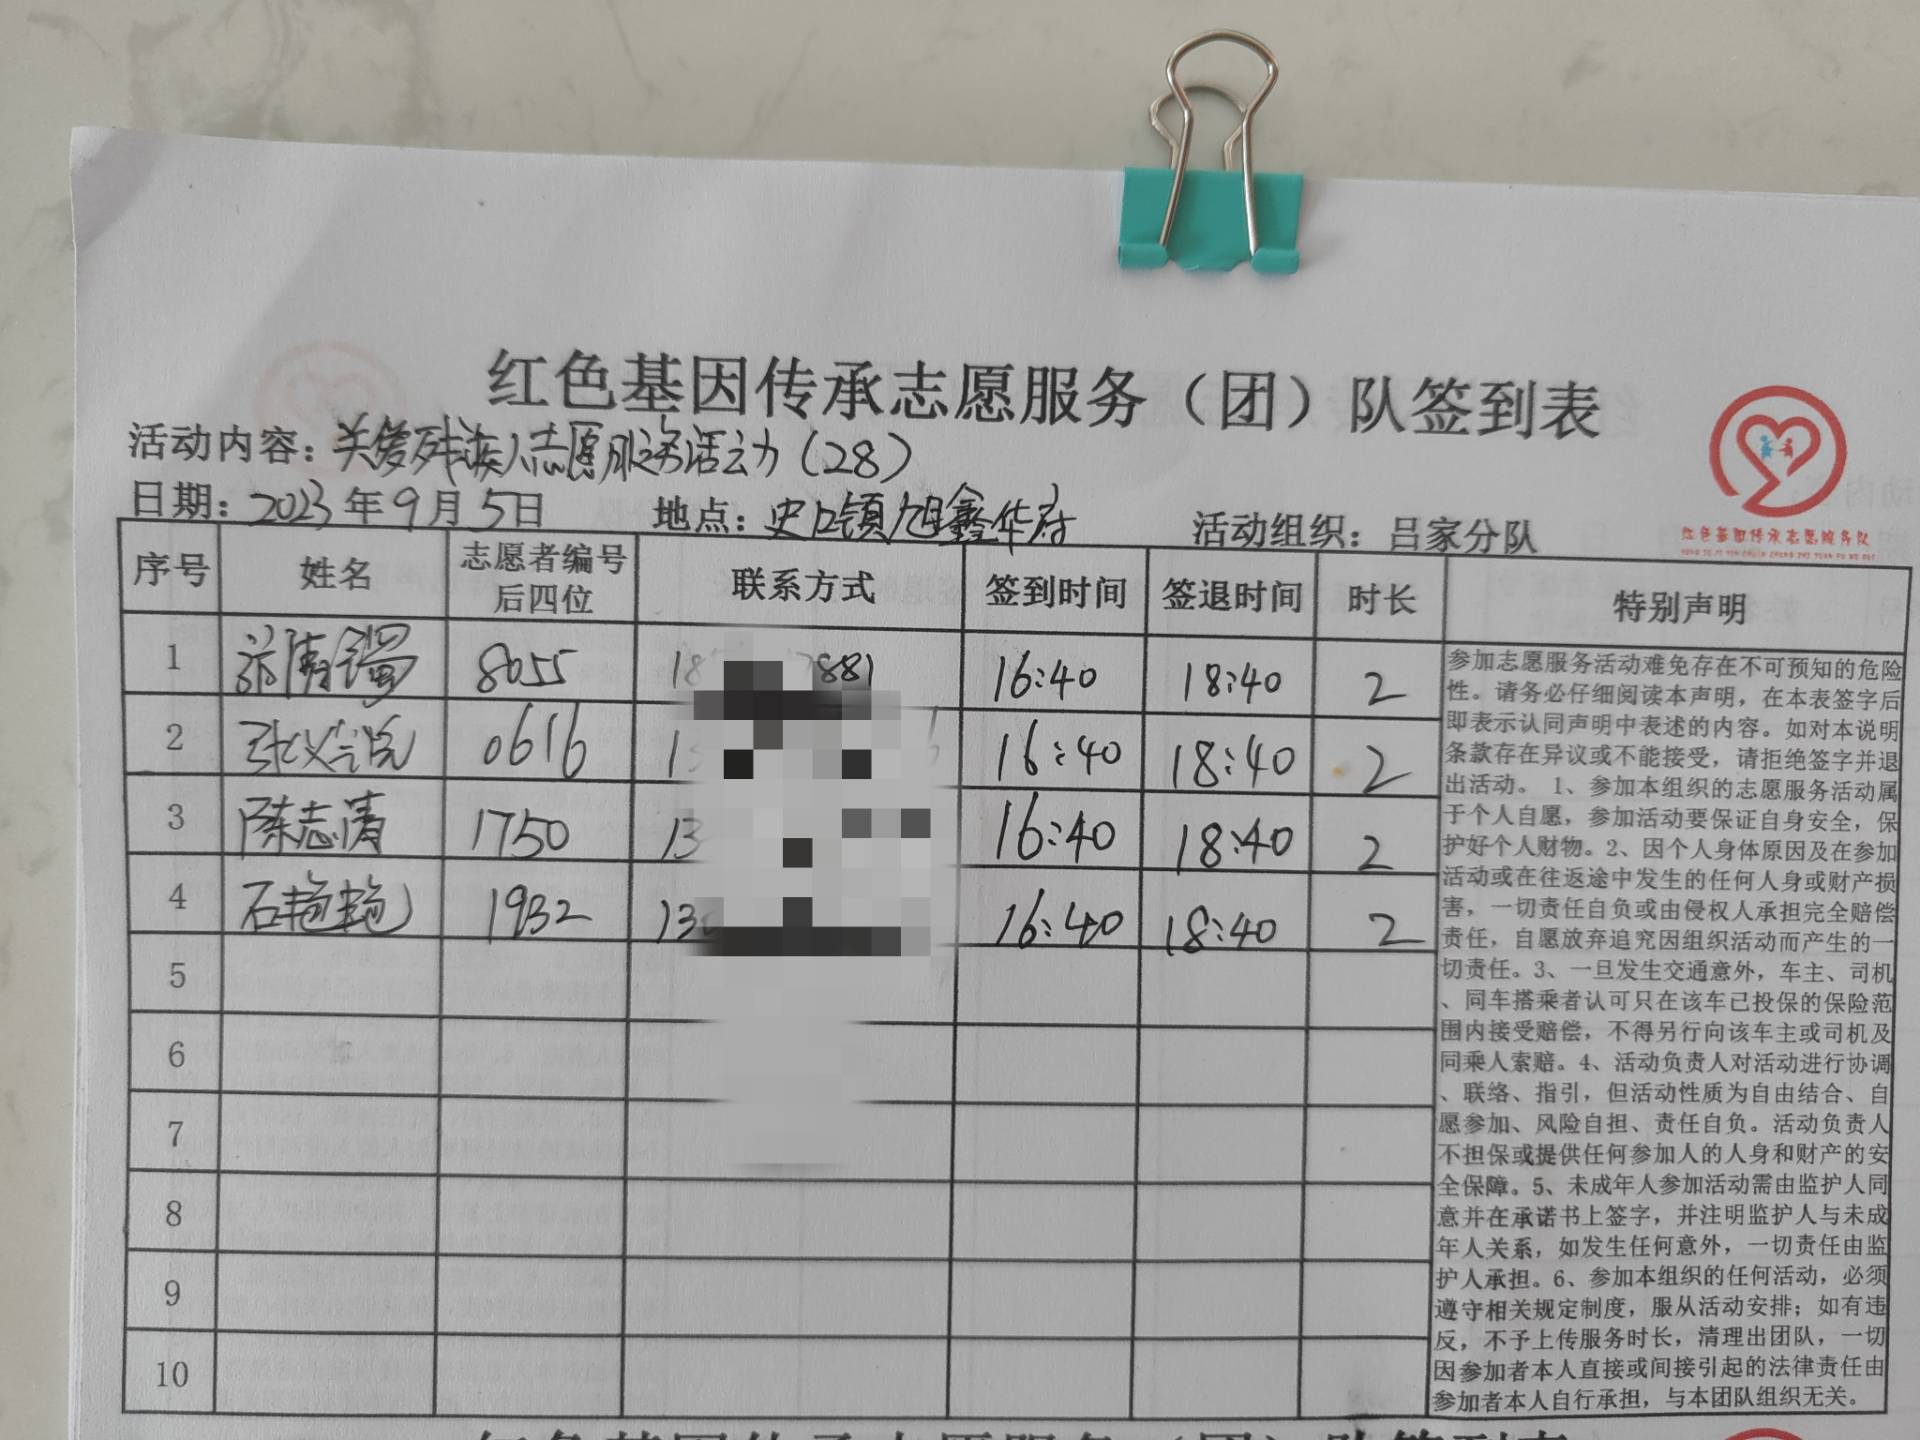 红色基因传承志愿服务（团）队签到表
活动内容：关爱残疾人志愿服务活动（28）
日期：2023年9月5日 地点：史口镇旭鑫华府 活动组织：吕家分队
红色基因传承志愿服务队
序号 姓名 志愿者编号后四位 联系方式 签到时间 签退时间 时长 特别声明
1 8055 18 7881 16:40 18:40 2
2 0616 13 16:40 18:40 2
3 陈志清 1750 13 16:40 18:40 2
4 石艳艳 1932 13 16:40 18:40 2
5
6
7
8
9
10
参加志愿服务活动难免存在不可预知的危险
性。请务必仔细阅读本声明，在本表签字后
即表示认同声明中表述的内容。如对本说明
条款存在异议或不能接受，请拒绝签字并退
出活动。 1、参加本组织的志愿服务活动属
于个人自愿，参加活动要保证自身安全，保
护好个人财物。2、因个人身体原因及在参加
活动或在往返途中发生的任何人身或财产损
害，一切责任自负或由侵权人承担完全赔偿
责任，自愿放弃追究因组织活动而产生的一
切责任。3、一旦发生交通意外，车主、司机
、同车搭乘者认可只在该车已投保的保险范
围内接受赔偿，不得另行向该车主或司机及
同乘人索赔。4、活动负责人对活动进行协调
、联络、指引，但活动性质为自由结合、自
愿参加、风险自担、责任自负。活动负责人
不担保或提供任何参加人的人身和财产的安
全保障。5、未成年人参加活动需由监护人同
意并在承诺书上签字，并注明监护人与未成
年人关系，如发生任何意外，一切责任由监
护人承担。6、参加本组织的任何活动，必须
遵守相关规定制度，服从活动安排；如有违
反，不予上传服务时长，清理出团队，一切
因参加者本人直接或间接引起的法律责任由
参加者本人自行承担，与本团队组织无关。
红色基因传承志愿服务（团）队签到表